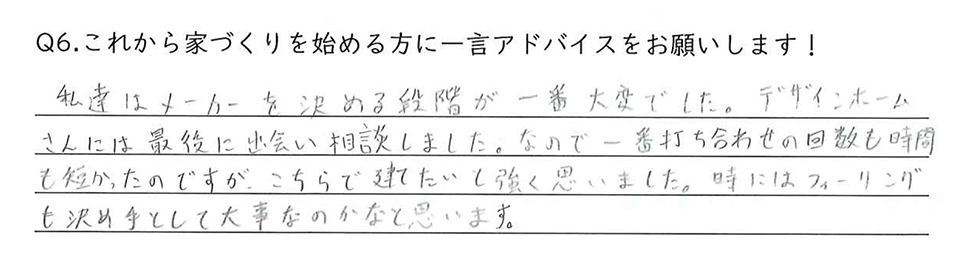 Q6.これから家づくりを始める方に一言アドバイスをお願いします！
私達はメーカーを決める段階が一番大変でした。デザインホーム
さんには最後に出会い相談しました。なので一番打ち合わせの回数も時間
も短かったのですが、こちらで建てたいと強く思いました。時にはフィーリング
も決め手として大事なのかなと思います。